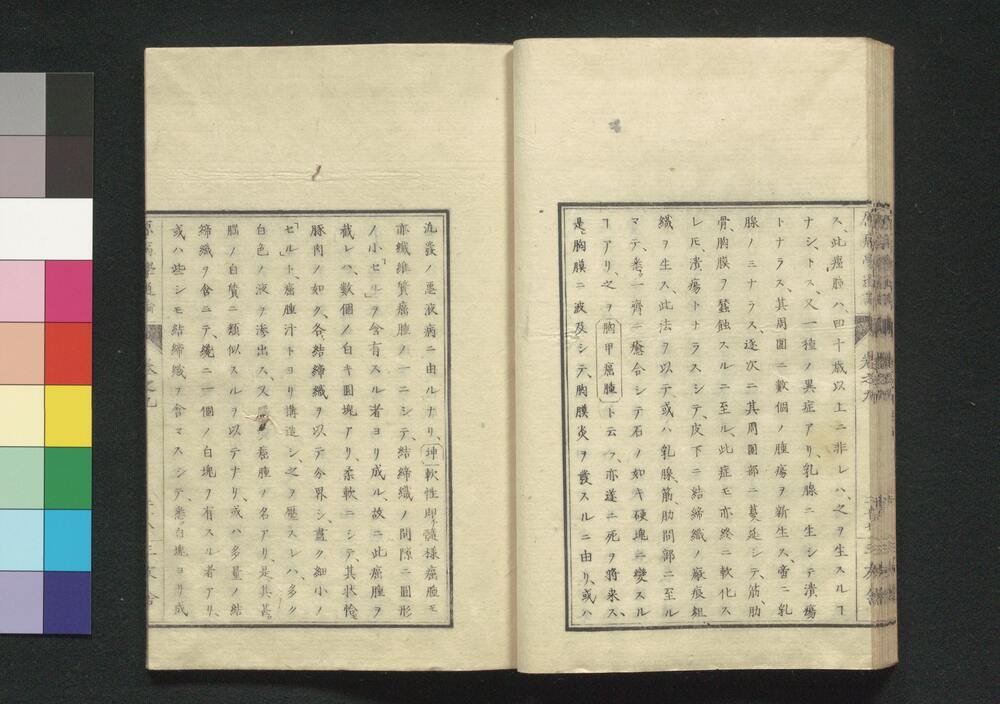 ス、此癌腫ハ、四十歳以上ニ非レハ、之ヲ生スルヿ
ナシ、トス、又一種ノ異症アリ、乳腺ニ生シテ潰瘍
トナラス、其周囲ニ数個ノ腫瘍ヲ新生ス、啻ニ乳
腺ノミナラス、逐次ニ其周囲部ニ蔓延シテ、筋肋
骨、胸膜ヲ蠶蝕スルニ至ル、此症モ亦終ニ軟化ス
レ𪜈、潰瘍トナラスシテ、皮下ニ結締織ノ瘢痕組
織ヲ生ス、此法ヲ以テ、或ハ乳腺、筋肋間部ニ至ル
マテ、悉ク一齊ニ癒合シテ石ノ如キ硬塊ニ變スル
ヿアリ、之ヲ胸甲癌腫ト云フ、亦遂ニ死ヲ将来ス、
是レ胸膜ニ波及シテ、胸膜炎ヲ發スルニ由リ、或ハ
流發ノ悪液病ニ由ルナリ、坤軟性即チ髄様癌腫モ
亦纖維質癌腫ノ一ニシテ、結締織ノ間隙ニ圓形
ノ小「セル」ヲ含有スル者ヨリ成ル、故ニ此癌腫ヲ
截レハ、數個ノ白キ圓塊アリ、柔軟ニシテ其状恰モ
豚肉ノ如ク、各結締織ヲ以テ分界シ、盡ク細小ノ
「セル」ト、癌腫汁トヨリ構造シ、之ヲ壓スレハ、多ク
白色ノ液ヲ滲出ス、又癌腫ノ名アリ、是其甚タ
脳ノ白質ニ類似スルヲ以テナリ、或ハ多量ノ結
締織ヲ含ミテ、纔ニ一個ノ白塊ヲ有スル者アリ、
或ハ些シモ結締織ヲ含マスシテ、悉ク白塊ヨリ成
原病學通論 巻之九 三友舎